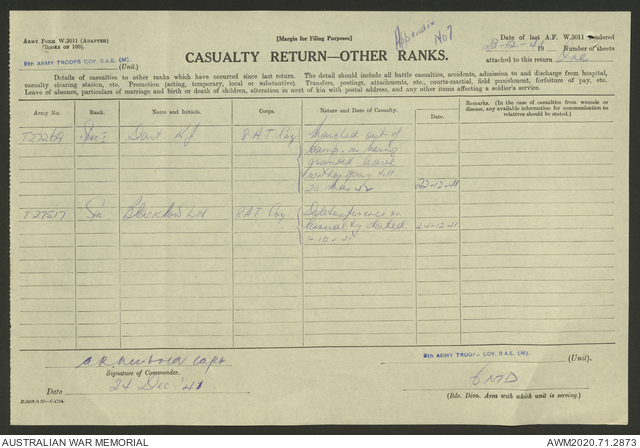 Army Form W.3011 (Adapted)
(Books of 100).
[Margin for Filing Purposes]
Appendix
No 7
Date of last A.F. W.3011 rendered
23-12-41 19
Number of sheets
attached to this return One
8th ARMY TROOPS COY. R.A.E. (M). (Unit.)
CASUALTY RETURN—OTHER RANKS.
Details of casualties to other ranks which have occurred since last return. The detail should include all battle casualties, accidents, admission to and discharge from hospital,
casualty clearing station, etc. Promotion (acting, temporary, local or substantive). Transfers, postings, attachments, etc., courts-martial, field punishment, forfeiture of pay, etc.
Leave of absence, particulars of marriage and birth or death of children, alteration in next of kin with postal address, and any other items affecting a soldier's service.
Army No. Rank. Name and Initials. Corps. Nature and Date of Casualty. Date. Remarks. (In the case of casualties from wounds or
disease, any available information for communication to
relatives should be stated.)
T27269 8 A T Coy Marched out of
camp on being
granted leave
without pay till
20 Mar 42 22-12-41
Spr 8 A T Coy
Casualty dated
-10-41 24-12-41
Capt
Signature of Commander.
Date 24 Dec '41
8th ARMY TROOPS COY. R.A.E. (M). (Unit).
6 M D
(Bde. Divn. Area with which unit is serving.)
AUSTRALIAN WAR MEMORIAL AWM2020.71.2873